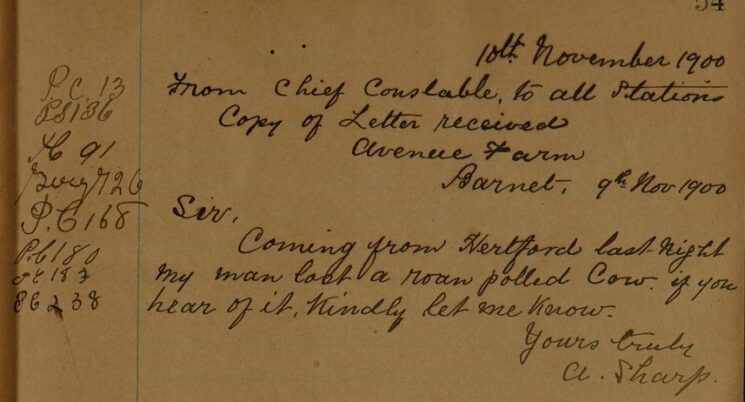 54
10th November 1900
From Chief Constable, to all Stations
Copy of Letter received
Avenue Farm
Barnet, 9th Nov 1900
Sir,
Coming from Hertford last night
my man lost a roan polled Cow. if you
hear of it, Kindly let me know.
Yours truly
A. Sharp.
P.C. 13
PS 136
91
126
P.C 168
P.C 180
P.C 183
P.C 238